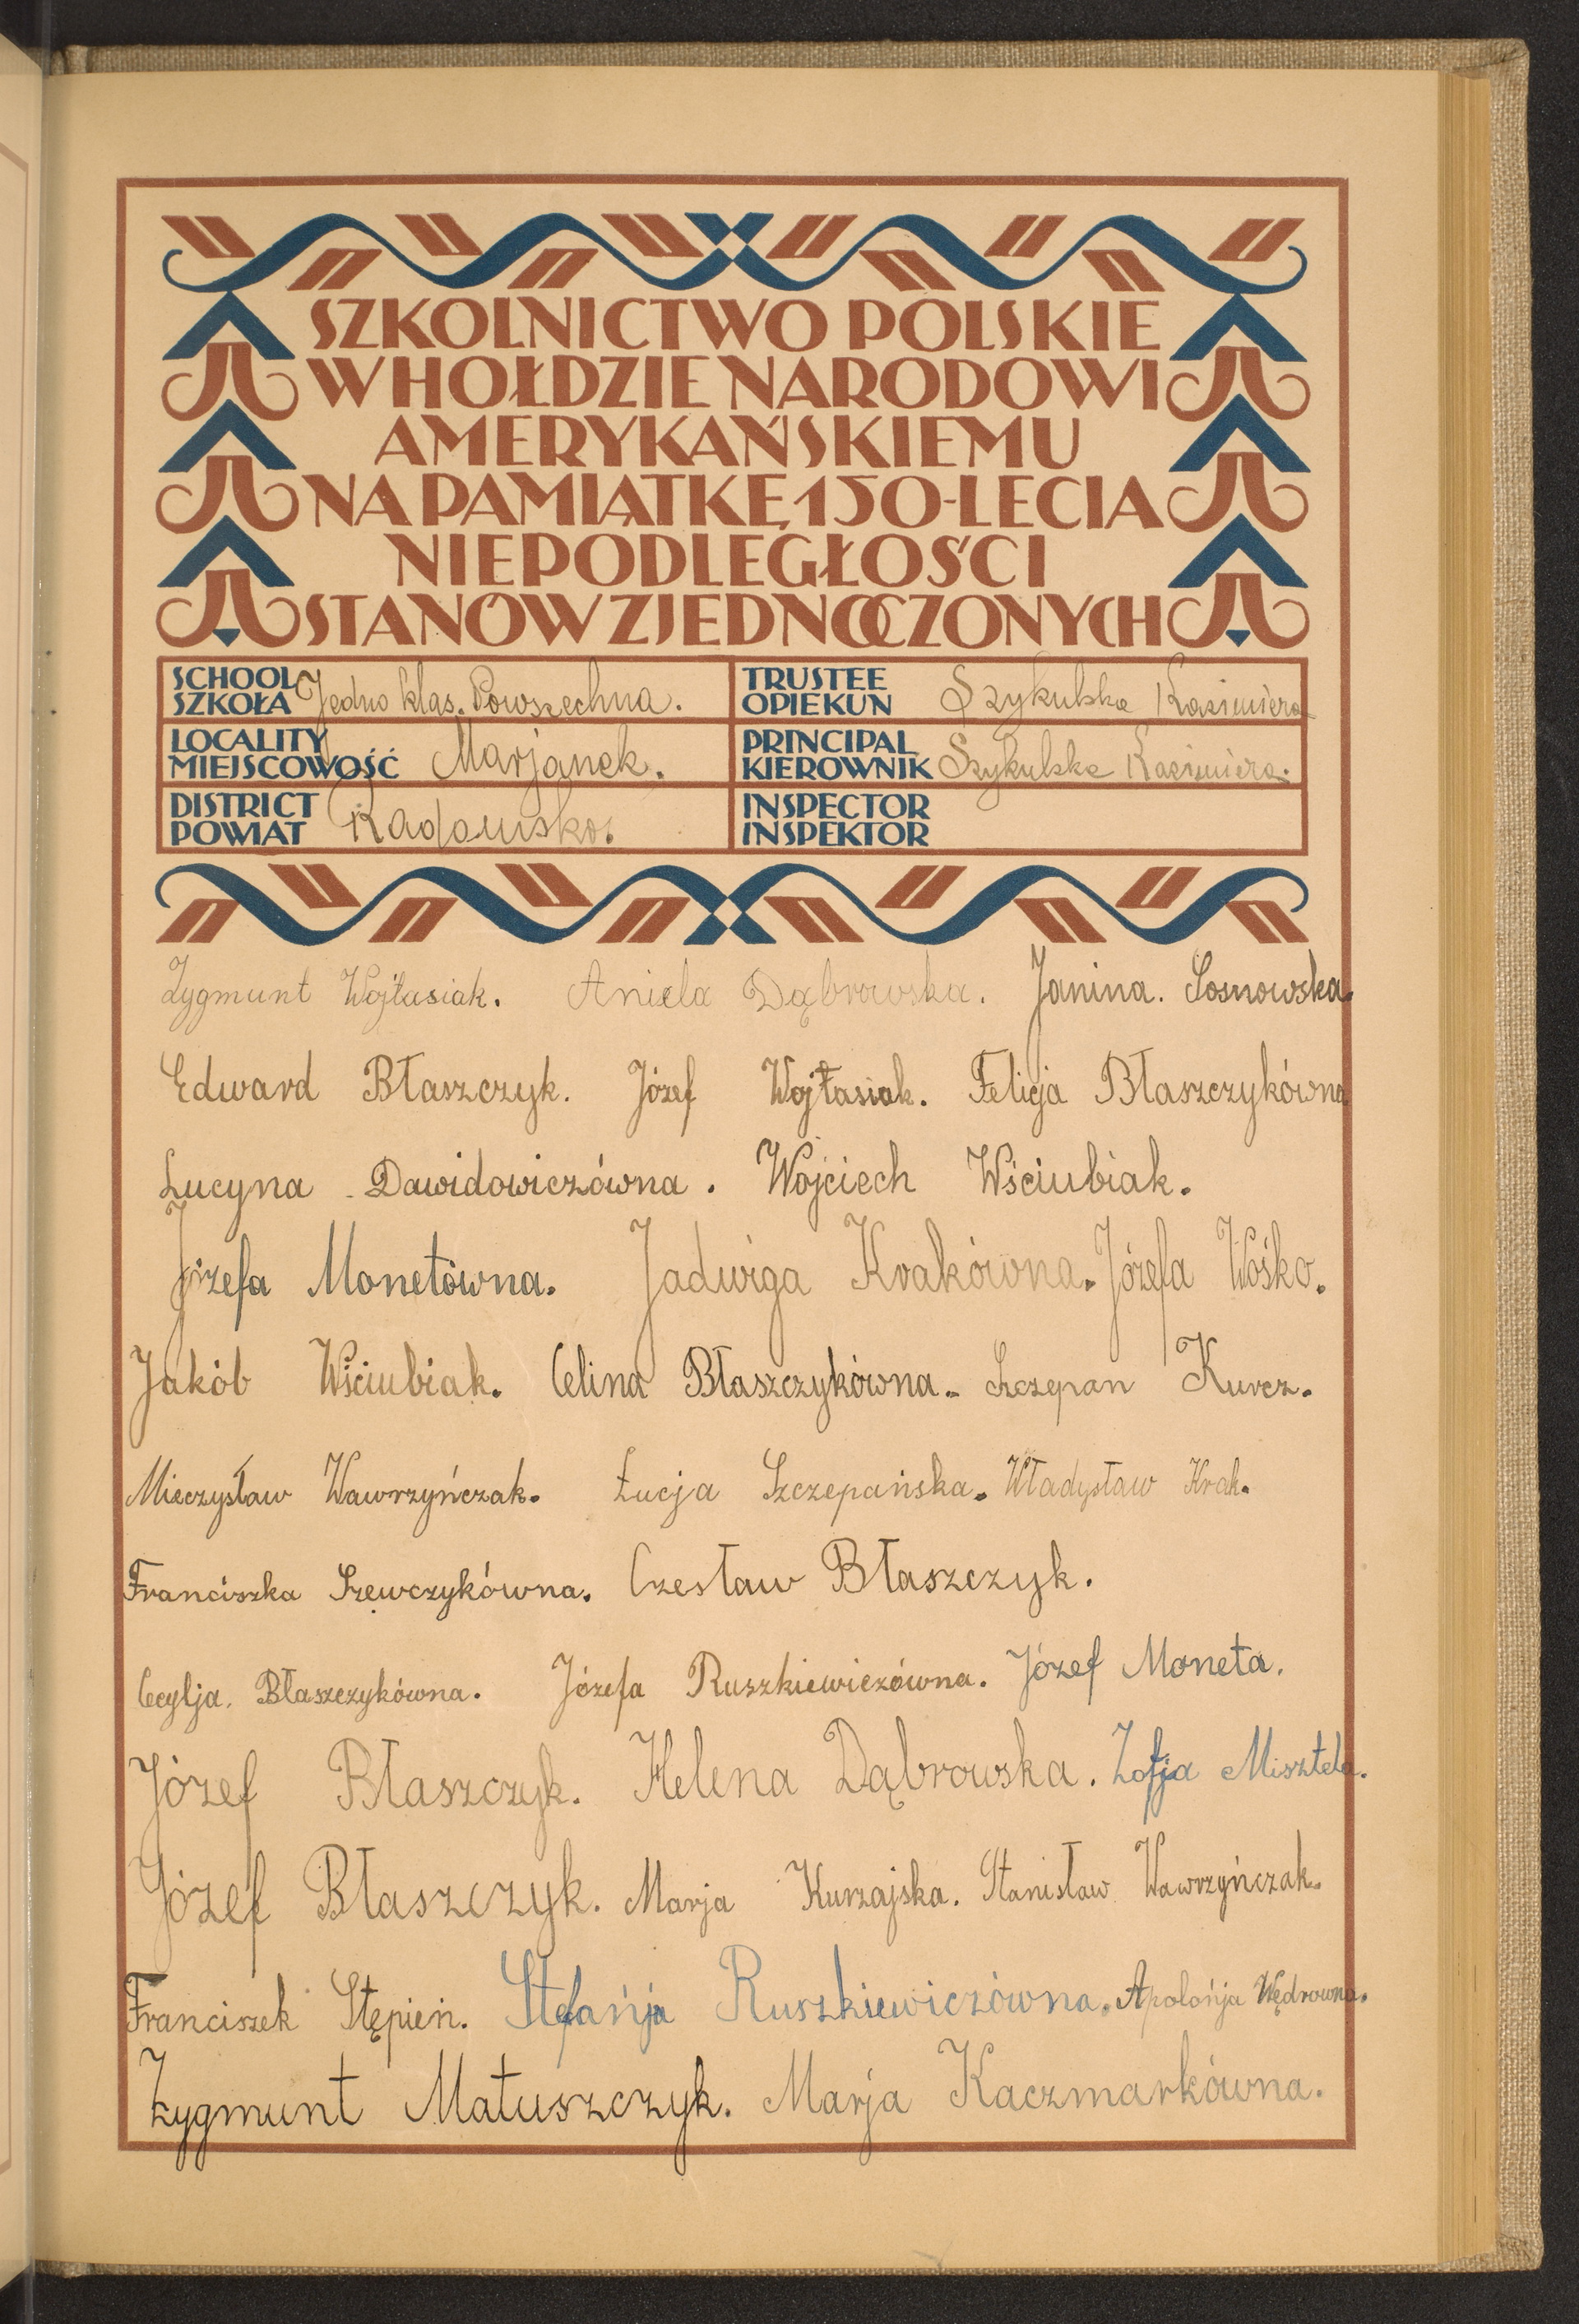 SZKOLNICTWO POLSKIE
W HOŁDZIE NARODOWI
AMERYKAŃSKIEMU
NA PAMIĄTKĘ 150-LECIA
NIEPODLEGŁOŚCI
STANÓW ZJEDNOCZONYCH
SCHOOL
SZKOŁA Jedno klas. Powszechna.
TRUSTEE
OPIEKUN Szykulska Kazimiera
LOCALITY
MIEJSCOWOŚĆ Marjanek.
PRINCIPAL
KIEROWNIK Szykulska Kazimiera.
DISTRICT
POWIAT Radomsko.
INSPECTOR
INSPEKTOR
Zygmunt Wojtasiak. Aniela Dąbrowska. Janina. Sosnowska.
Edward Błaszczyk. Józef Wojtasiak. Felicja Błaszczykówna
Lucyna Dawidowiczówna. Wojciech Wściubiak.
Józefa Monetówna. Jadwiga Krakówna. Józefa Wośko.
Jakób Wściubiak. Celina Błaszczykówna. Szczepan Kurcz.
Mieczysław Wawrzyńczak. Łucja Szczepańska. Władysław Krak.
Franciszka Szewczykówna. Czesław Błaszczyk.
Cecylja. Błaszczykówna. Józefa Ruszkiewiczówna. Józef Moneta.
Józef Błaszczyk. Helena Dąbrowska. Zofja Misztela.
Józef Błaszczyk. Marja Kurzajska. Stanisław Wawrzyńczak.
Franciszek Stępień. Stefańja Ruszkiewiczówna. Apolońja Wędrowna.
Zygmunt Matuszczyk. Marja Kaczmarkówna.